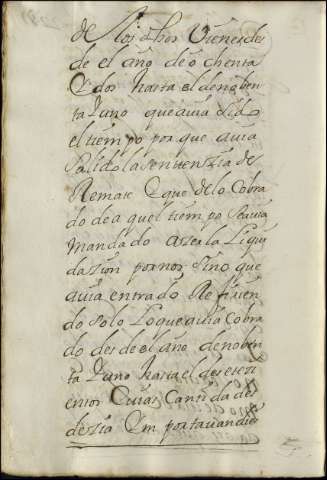 de los dhos Vienesdes
de el año de ochenta
Y dos hasta el denoben
ta Y uno que auia sido
el tiempo por que auia
salido la sentenzia de
Remate Y que de lo Cobra
do de a quel tiempo se auia
mandado aser la Liqui
dazion por nos sino que
auia entrado Refirien
do solo lo que auia Cobra
do des de el año denoben
ta Y uno hasta el de seis
entos Cuias Cantidades
dessia Ymportauandies